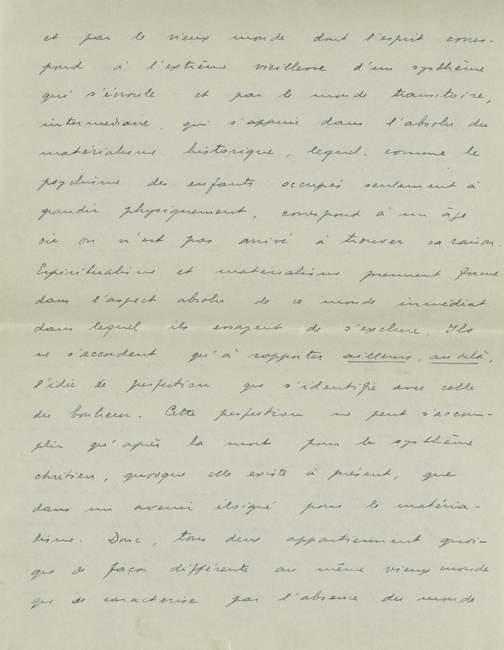 et par le vieux monde dont l'esprit corres-
pond à l'extrême vieillesse d'un systhème
qui s'écroule et par le monde transitoire,
intermediaire, qui s'appuie dans l'absolu du
matérialisme historique, lequel, comme le
psychisme des enfants occupés seulement à
grandir physiquement, correspond à un âge
où on n'est pas arrivé à trouver sa raison.
Espiritualisme et matérialisme prennent forme
dans l'aspect absolu de ce monde immédiat
dans lequel ils essayent de s'exclure. Ils
ne s'accordent qu'à rapporter ailleurs, au delà,
l'idée de perfection que s'identifie avec celle
du bonheur. Cette perfection ne peut s'accom-
plir qu'après la mort pour le systhème
chrétien, quoique elle existe à présent, que
dans un avenir éloigné pour le matéria-
lisme. Donc, tous deux appartiennent quoi-
que de façon différente au même vieux monde
que se caracterise par l'absence du monde